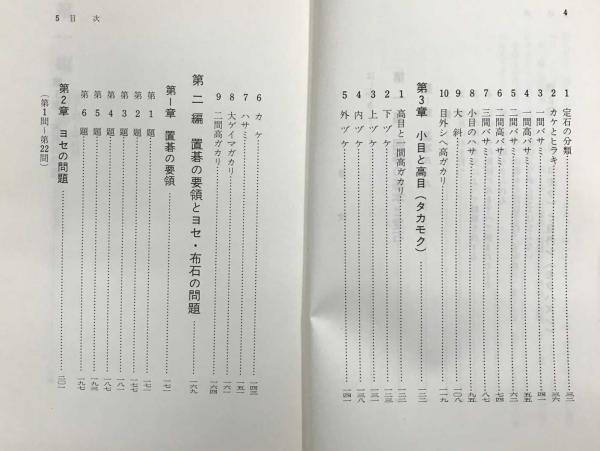 4
1 定石の分類 三二
2 カケとヒラキ 三六
3 一間バサミ 四一
4 一間高バサミ 五五
5 二間バサミ 六二
6 二間高バサミ 七二
7 三間バサミ 八七
8 小目のハサミ 九五
9 大斜 一〇八
10 目外シへ高ガカリ 一一九
第3章 小目と高目(タカモク) 一二二
1 高目と一間高ガカリ 一二二
2 下ヅケ 一二三
3 上ヅケ 一三一
4 内ヅケ 一三八
5 外ヅケ 一四一
5 目次
6 カケ 一四三
7 ハサミ 一五一
8 大ゲイマガカリ 一六一
9 二間高ガカリ 一六四
第二編 置碁の要領とヨセ・布石の問題 一六九
第1章 置碁の要領 一七一
第1題 一七一
第2題 一七七
第3題 一八一
第4題 一八七
第5題 一九三
第6題 一九七
第2章 ヨセの問題 二〇一
(第1問~第22問)